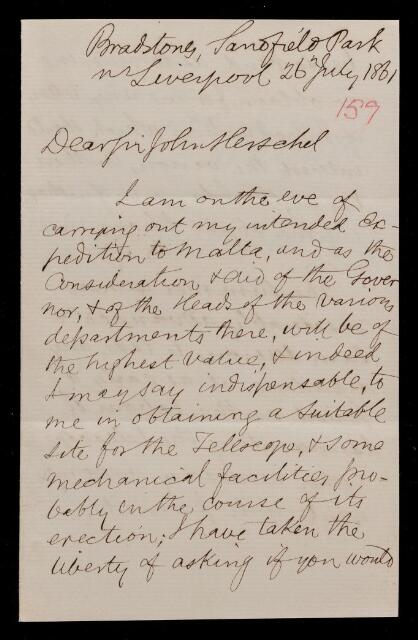 Bradstones, Sandfield Park
nr Liverpool 26th July 1861
159
Dear Sir John Herschel
I am on the eve of
carrying out my intended Ex-
pedition to Malta, and as the
Consideration & Aid of the Gover
nor, & of the Heads of the various
departments there, will be of
the highest value, & indeed
I may say indispensable, to
me in obtaining a suitable
site for the Telescope, & some
mechanical facilities pro-
bably in the course of its
erection; I have taken the
liberty of asking if you would